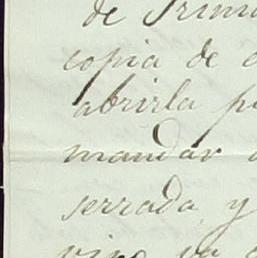 de Prim
copia de
abrirla p
mandar
serrada y
vino ya